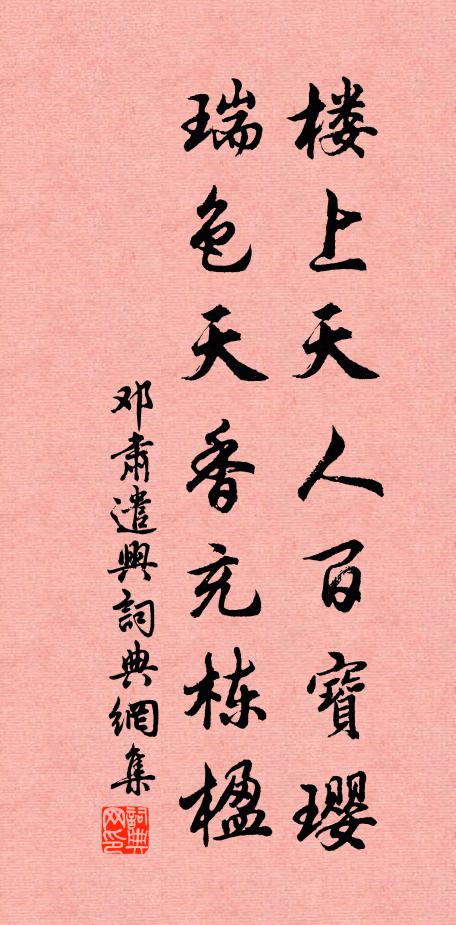 楼上天人百寶璎
瑞色天香充栋楹
邓肅遣興詞典網集
詞典网印